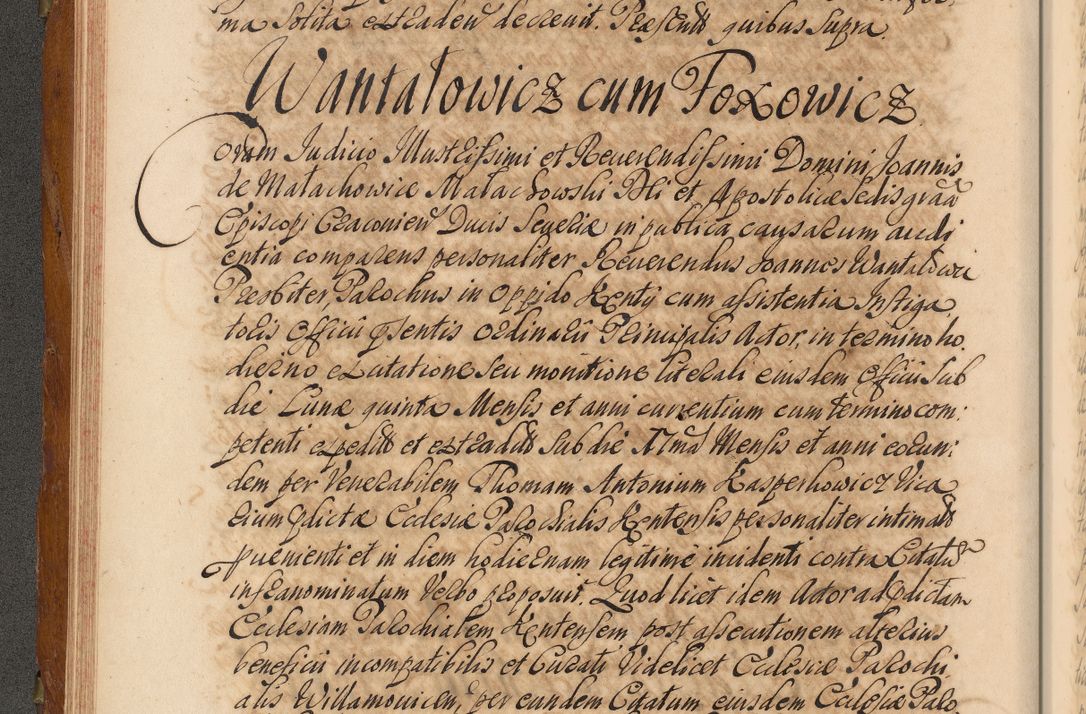 ma Solita extraden decrevit. Præsentt quibus Supra.
Wantałowicz cum Foxowicz
Coram Judicio Illustrissimi et Reverendissimi Domini Joannis
de Małachowice Małachowski Dei et Apostolicæ Sedis graa
Episcopi Cracovien Ducis Severiæ in publica causarum audi
entia comparens personaliter Reverendus Joannes Wantałowic
Presbiter, Parochus in Oppido Kenty cum assistentia Instiga,
toris Officii psentis Ordinarii Principalis Actor, in termino ho,
dierno ex citatione seu monitione literali eiusdem Officii sub
die Lunæ quinta Mensis et anni currentium cum termino com:
petenti expeditt et extraditt sub die 17ma Mensis et anni eorun:
dem per Venerabilem Thomam Antonium Kasperkowicz Vica
rium pdictæ Ecclesiæ Parochialis Kentensis personaliter intimatt
pueniente et in diem hodiernam legitime incidenti contra Citatum
infranominatum Verbo proposuit. Quod licet idem Actor ad pdictam
Ecclesiam Parochialem Kentensem post assecutionem alterius
beneficii incompatibilis et Curati Videlicet Ecclesiæ Parochi,
alis Willamovicen, per eundem Citatum eiusdem Ecclesiæ Paro